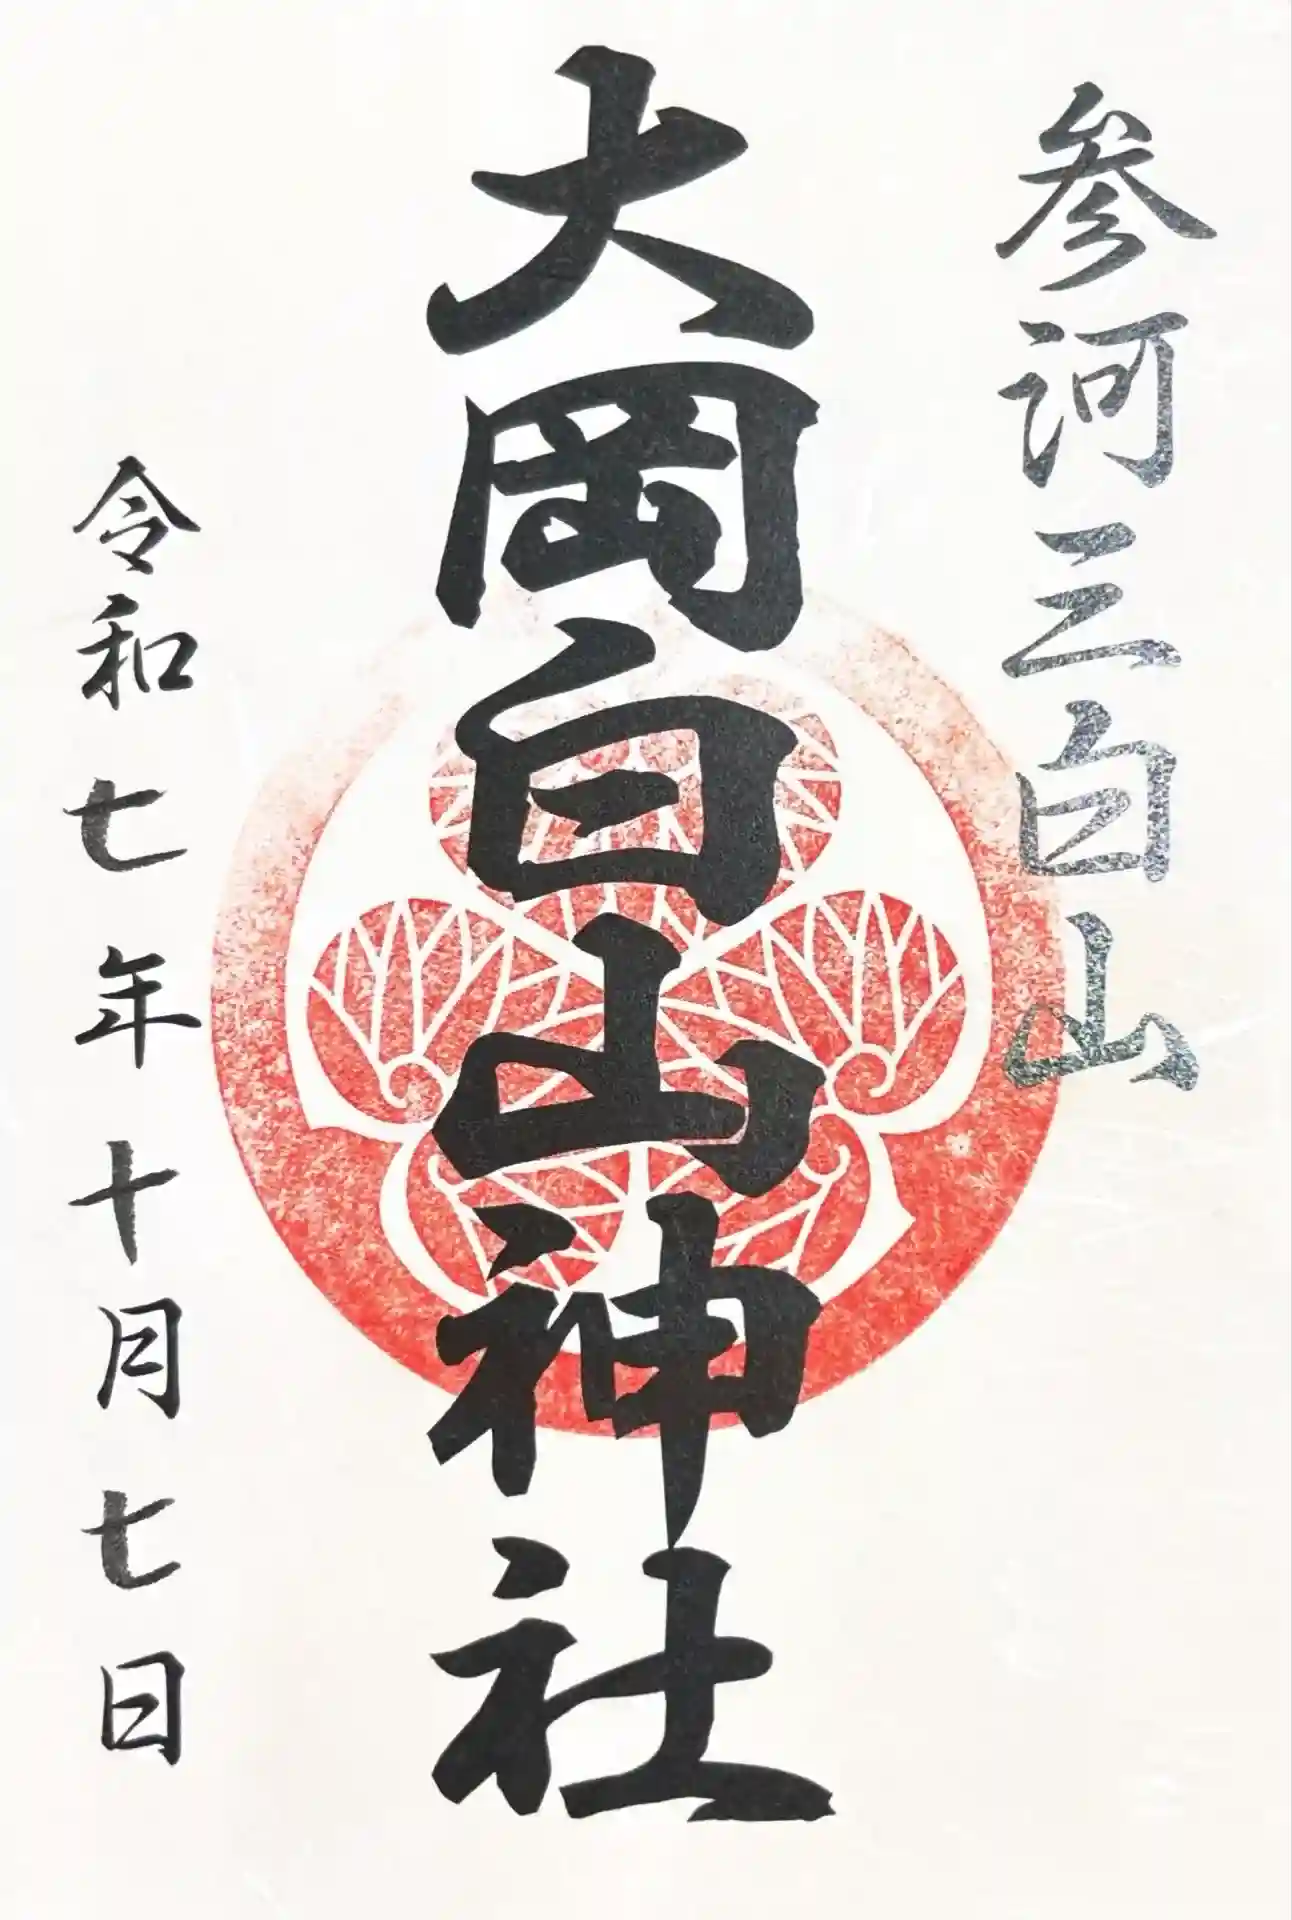 参河三白山
大岡白山神社
令和七年十月七日